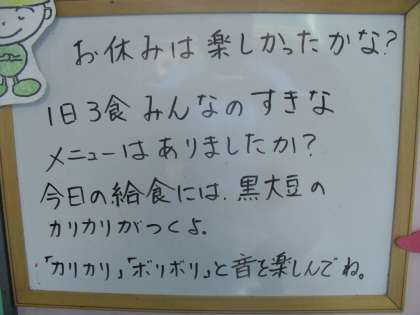 お休みは楽しかったかな?
1日3食みんなのすきな
メニューはありましたか?
今日の給食には、黒大豆の
カリカリがつくよ。
「カリカリ」「ボリボリ」と音を楽しんでね。